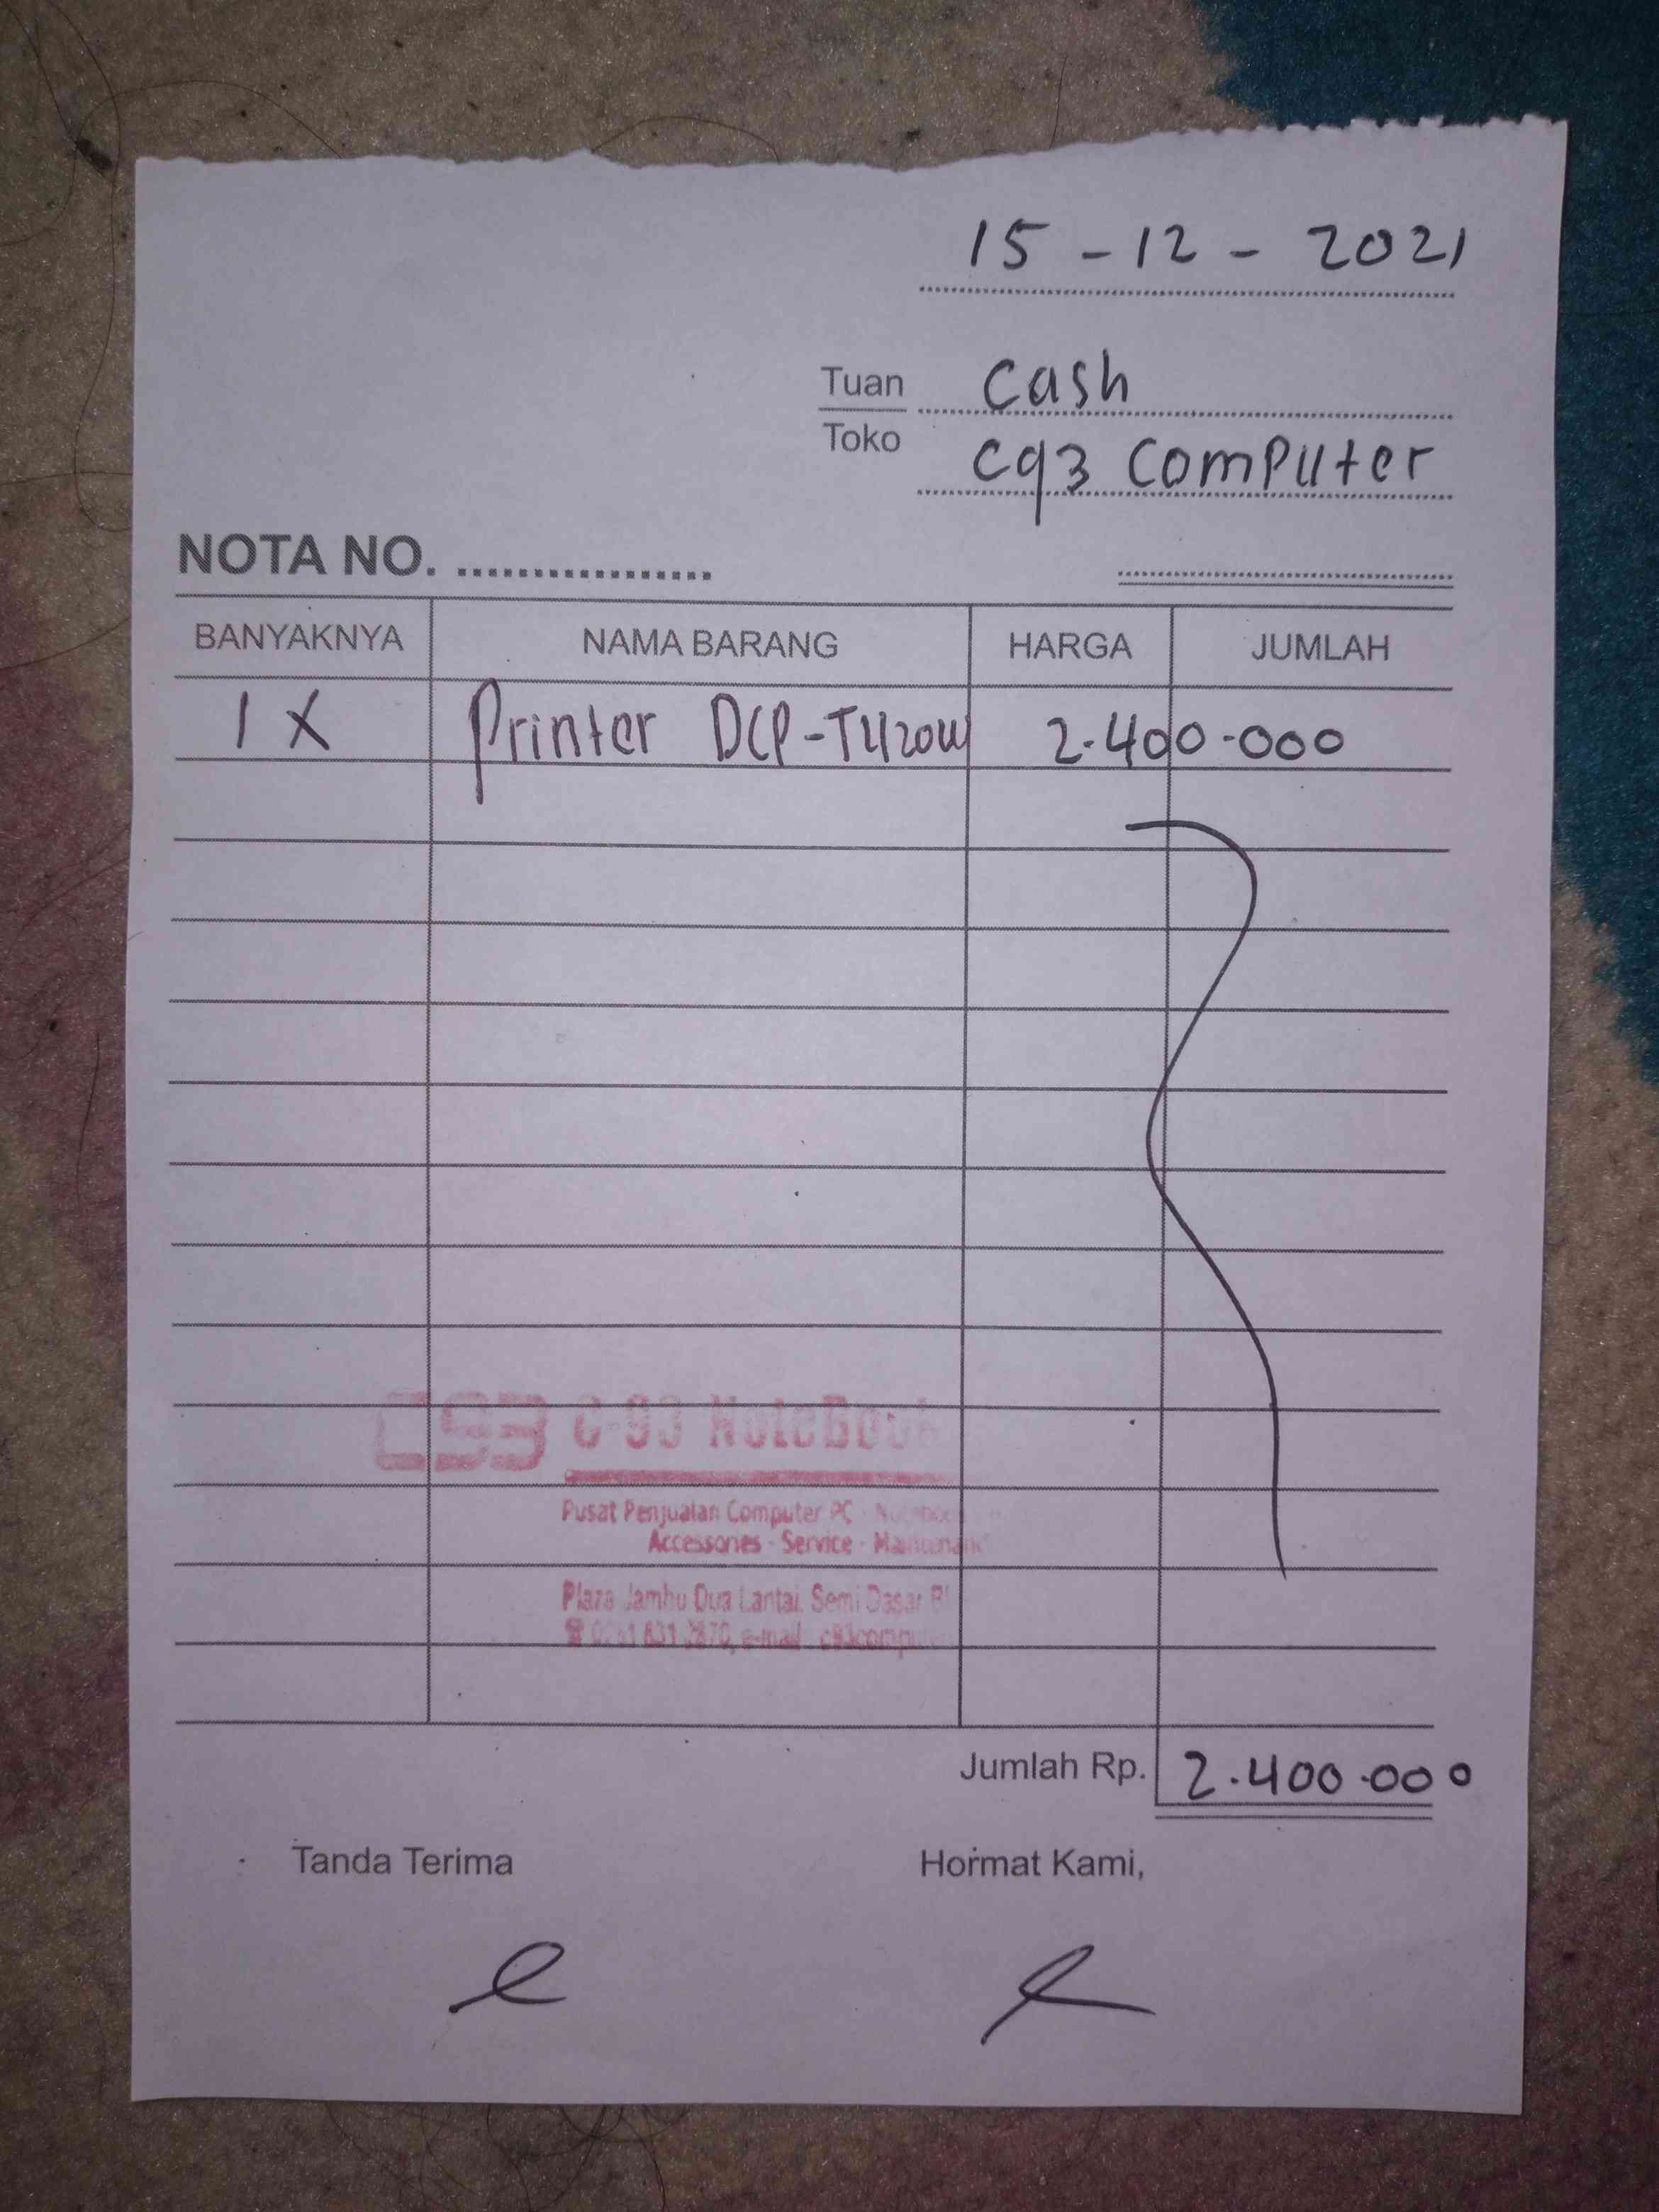 15 - 12 - 2021
Tuan Cash
Toko C93 Computer
NOTA NO. ..................
BANYAKNYA NAMA BARANG HARGA JUMLAH
1 X Printer DCP-T420W 2.400.000
C93 C-93 NoteBook
Pusat Penjualan Computer PC - Notebook
Accessories - Service - Maintenanc
Plaza Jambu Dua Lantai. Semi Dasar Bl
e-mail : c93comput
Jumlah Rp. 2.400.000
Tanda Terima Hormat Kami,